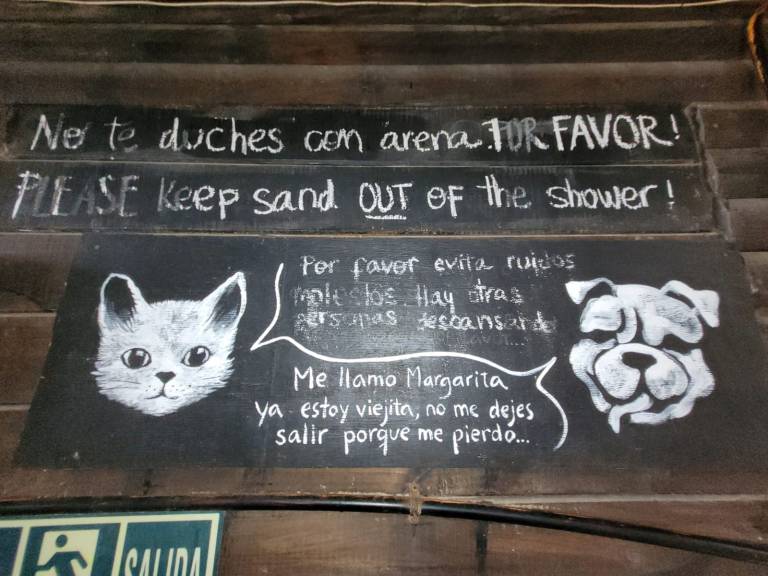 No te duches con arena. POR FAVOR!
PLEASE keep sand OUT of the shower!
Por favor evita ruidos
molestos. Hay otras
personas descansando
Me llamo Margarita
ya estoy viejita, no me dejes
salir porque me pierdo...
SALIDA